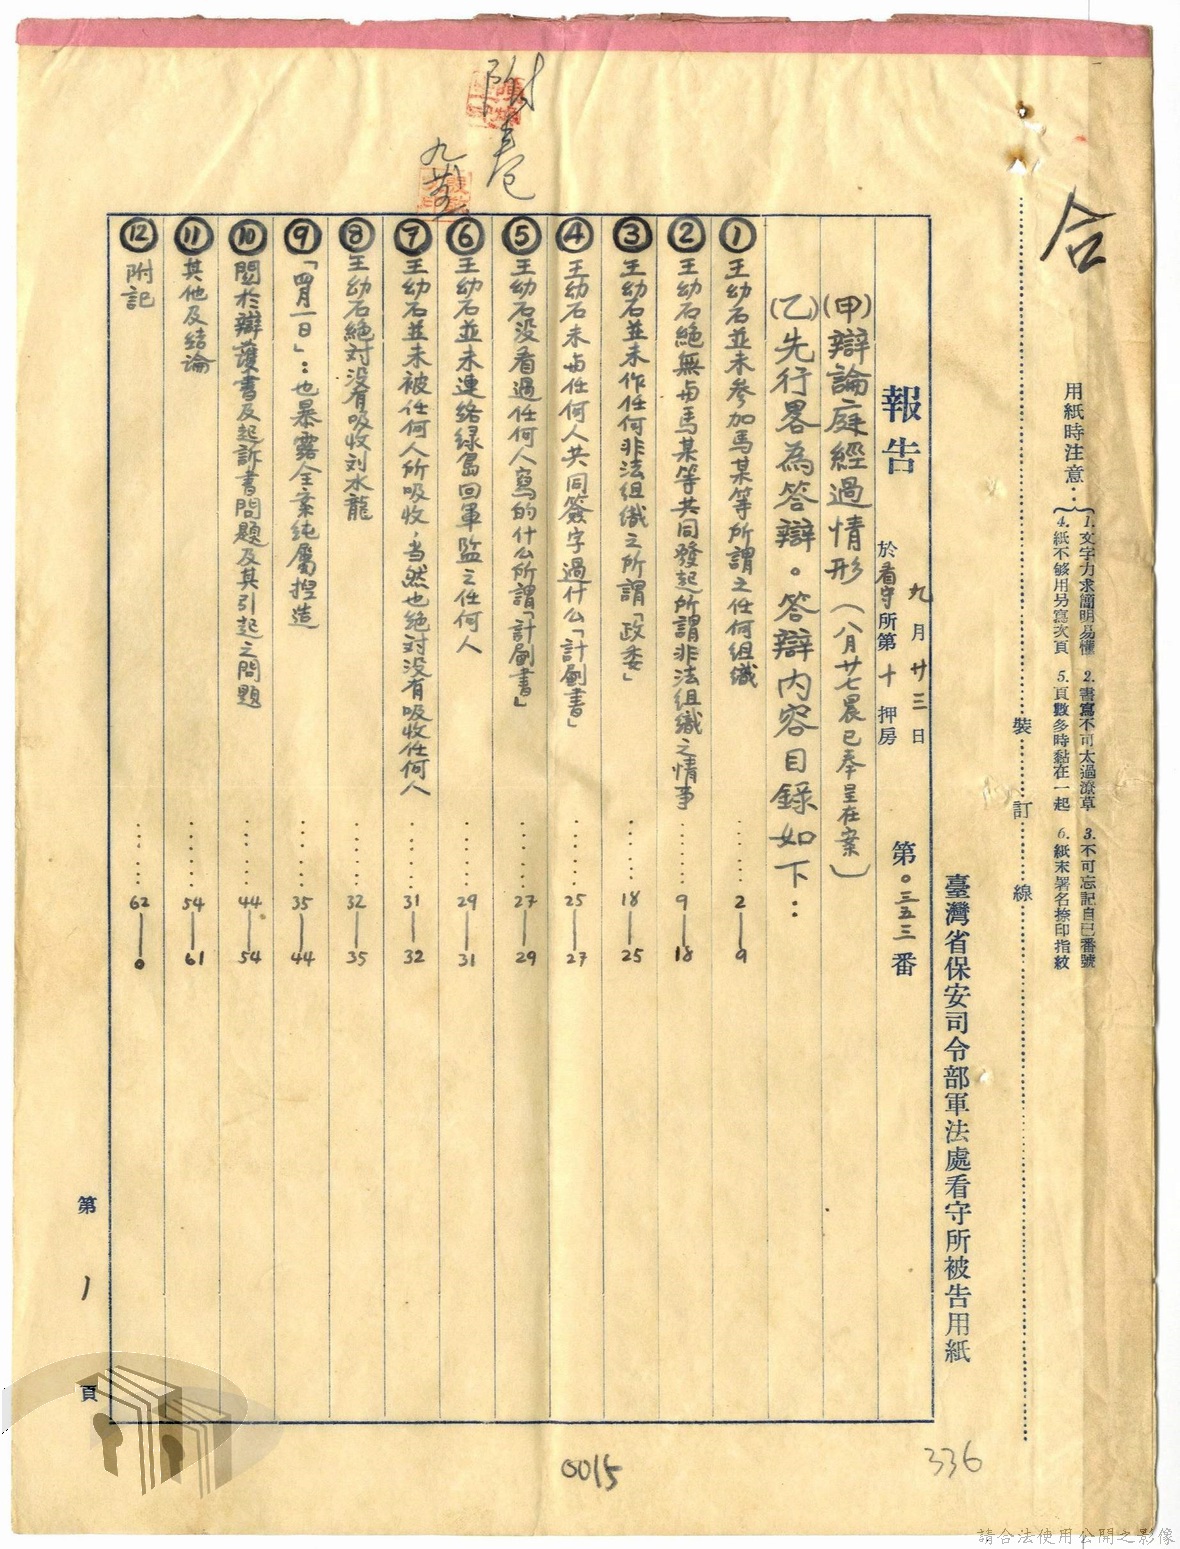 附卷
九
合
用紙時注意：
1. 文字力求簡明易懂 2. 書寫不可太過潦草 3. 不可忘記自己番號
4. 紙不够用另寫次頁 5. 頁數多時黏在一起 6. 紙末署名捺印指紋
裝訂線
臺灣省保安司令部軍法處看守所被告用紙
報告
九月廿三日
於看守所第十押房
第〇三五三番
(甲)辯論庭經過情形(八月廿七晨已奉呈在案)
(乙)先行畧為答辯。答辯內容目錄如下：
① 王幼石並未參加馬某等所謂之任何組織……2—9
② 王幼石絕無与馬某等共同發起所謂非法組織之情事……9—18
③ 王幼石並未作任何非法組織之所謂「政委」……18—25
④ 王幼石未与任何人共同簽字過什么「計劃書」……25—27
⑤ 王幼石没看過任何人寫的什么所謂「計劃書」……27—29
⑥ 王幼石並未連絡绿島回軍監之任何人……29—31
⑦ 王幼石並未被任何人所吸收，当然也绝对没有吸收任何人……31—32
⑧ 王幼石絕对没有吸收刘水龍……32—35
⑨ 「四月一日」：也暴露全案纯屬捏造……35—44
⑩ 關於辯護書及起訴書問題及其引起之問題……44—54
⑪ 其他及结論……54—61
⑫ 附記……62—0
第1頁
0015
336
請合法使用公開之影像